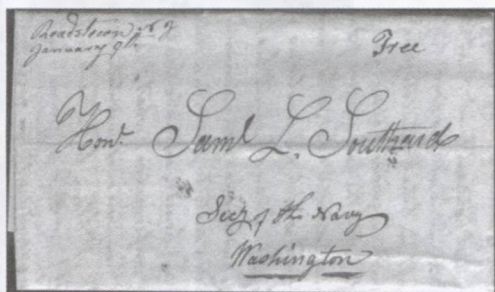 Roadstown N J
January 9th
Free
Honl. Saml L. Southard
Secy of the Navy
Washington